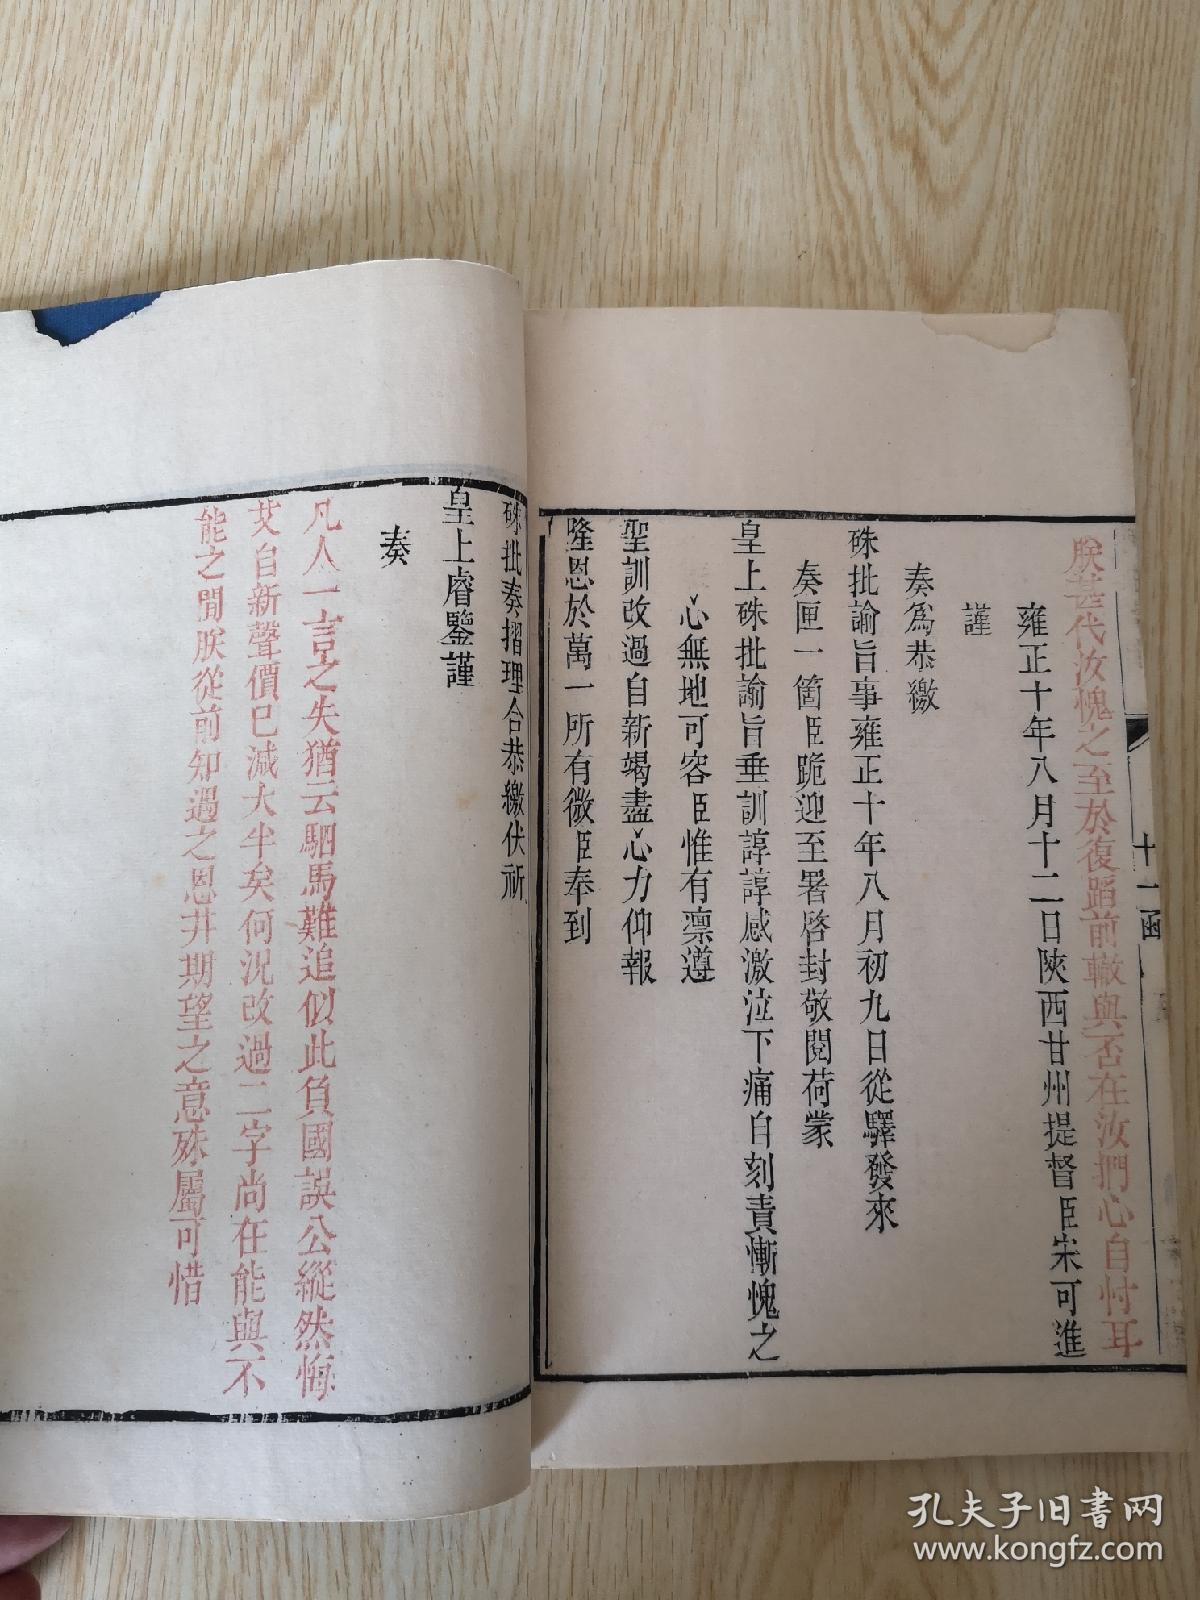 朕甚代汝愧之至於復蹈前轍與否在汝捫心自忖耳
雍正十年八月十二日陝西甘州提督臣宋可進
謹
奏爲恭繳
硃批諭旨事雍正十年八月初九日從驛發來
奏匣一箇臣跪迎至署啓封敬閱荷蒙
皇上硃批諭旨垂訓諄諄感激泣下痛自刻責慚愧之
心無地可容臣惟有凛遵
聖訓改過自新竭盡心力仰報
隆恩於萬一所有微臣奉到
硃批奏摺理合恭繳伏祈
皇上睿鑒謹
奏
凡人一言之失猶云駟馬難追似此負國誤公縱然悔
艾自新聲價已減大半矣何況改過二字尚在能與不
能之間朕從前知遇之恩并期望之意殊屬可惜
十二函
孔夫子旧书网
www.kongfz.com